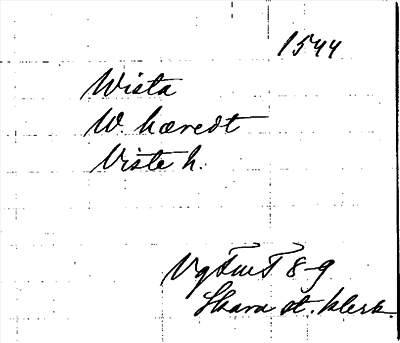 1544
Wista
W. hæredt
Viste h.
8-9
Skara st. klerk.